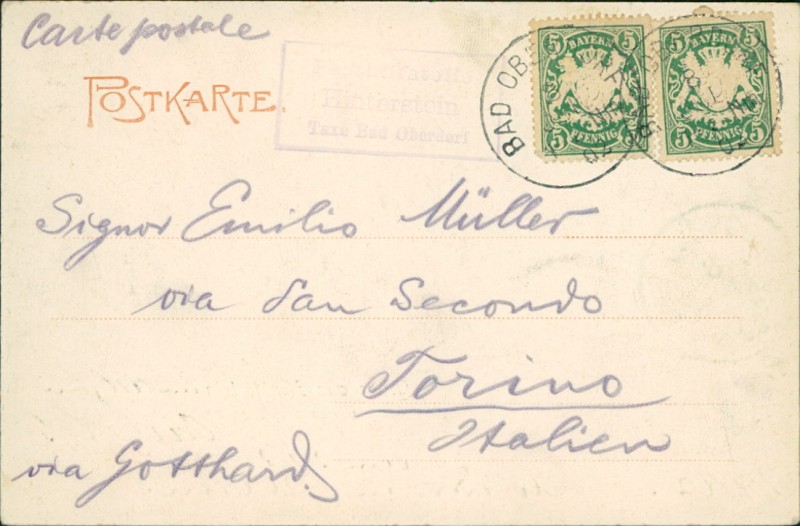 Carte postale
POSTKARTE.
Hinterstein
Taxe Bad Oberdorf
BAYERN
5 5
5 PFENNIG 5
BAYERN
5 5
5 PFENNIG 5
BAD OBERDORF
02
Signor Emilio Müller
via San Secondo
Torino
Italien
via Gotthard